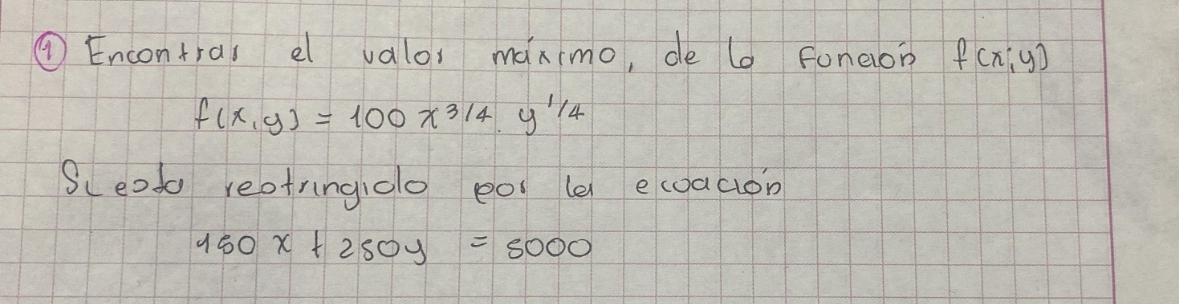 ① Encontrar el valor máximo, de la función f(x,y)
f(x,y) = 100 x^3/4 . y^1/4
Si esta restringido por la ecuación
150 x + 250y = 5000